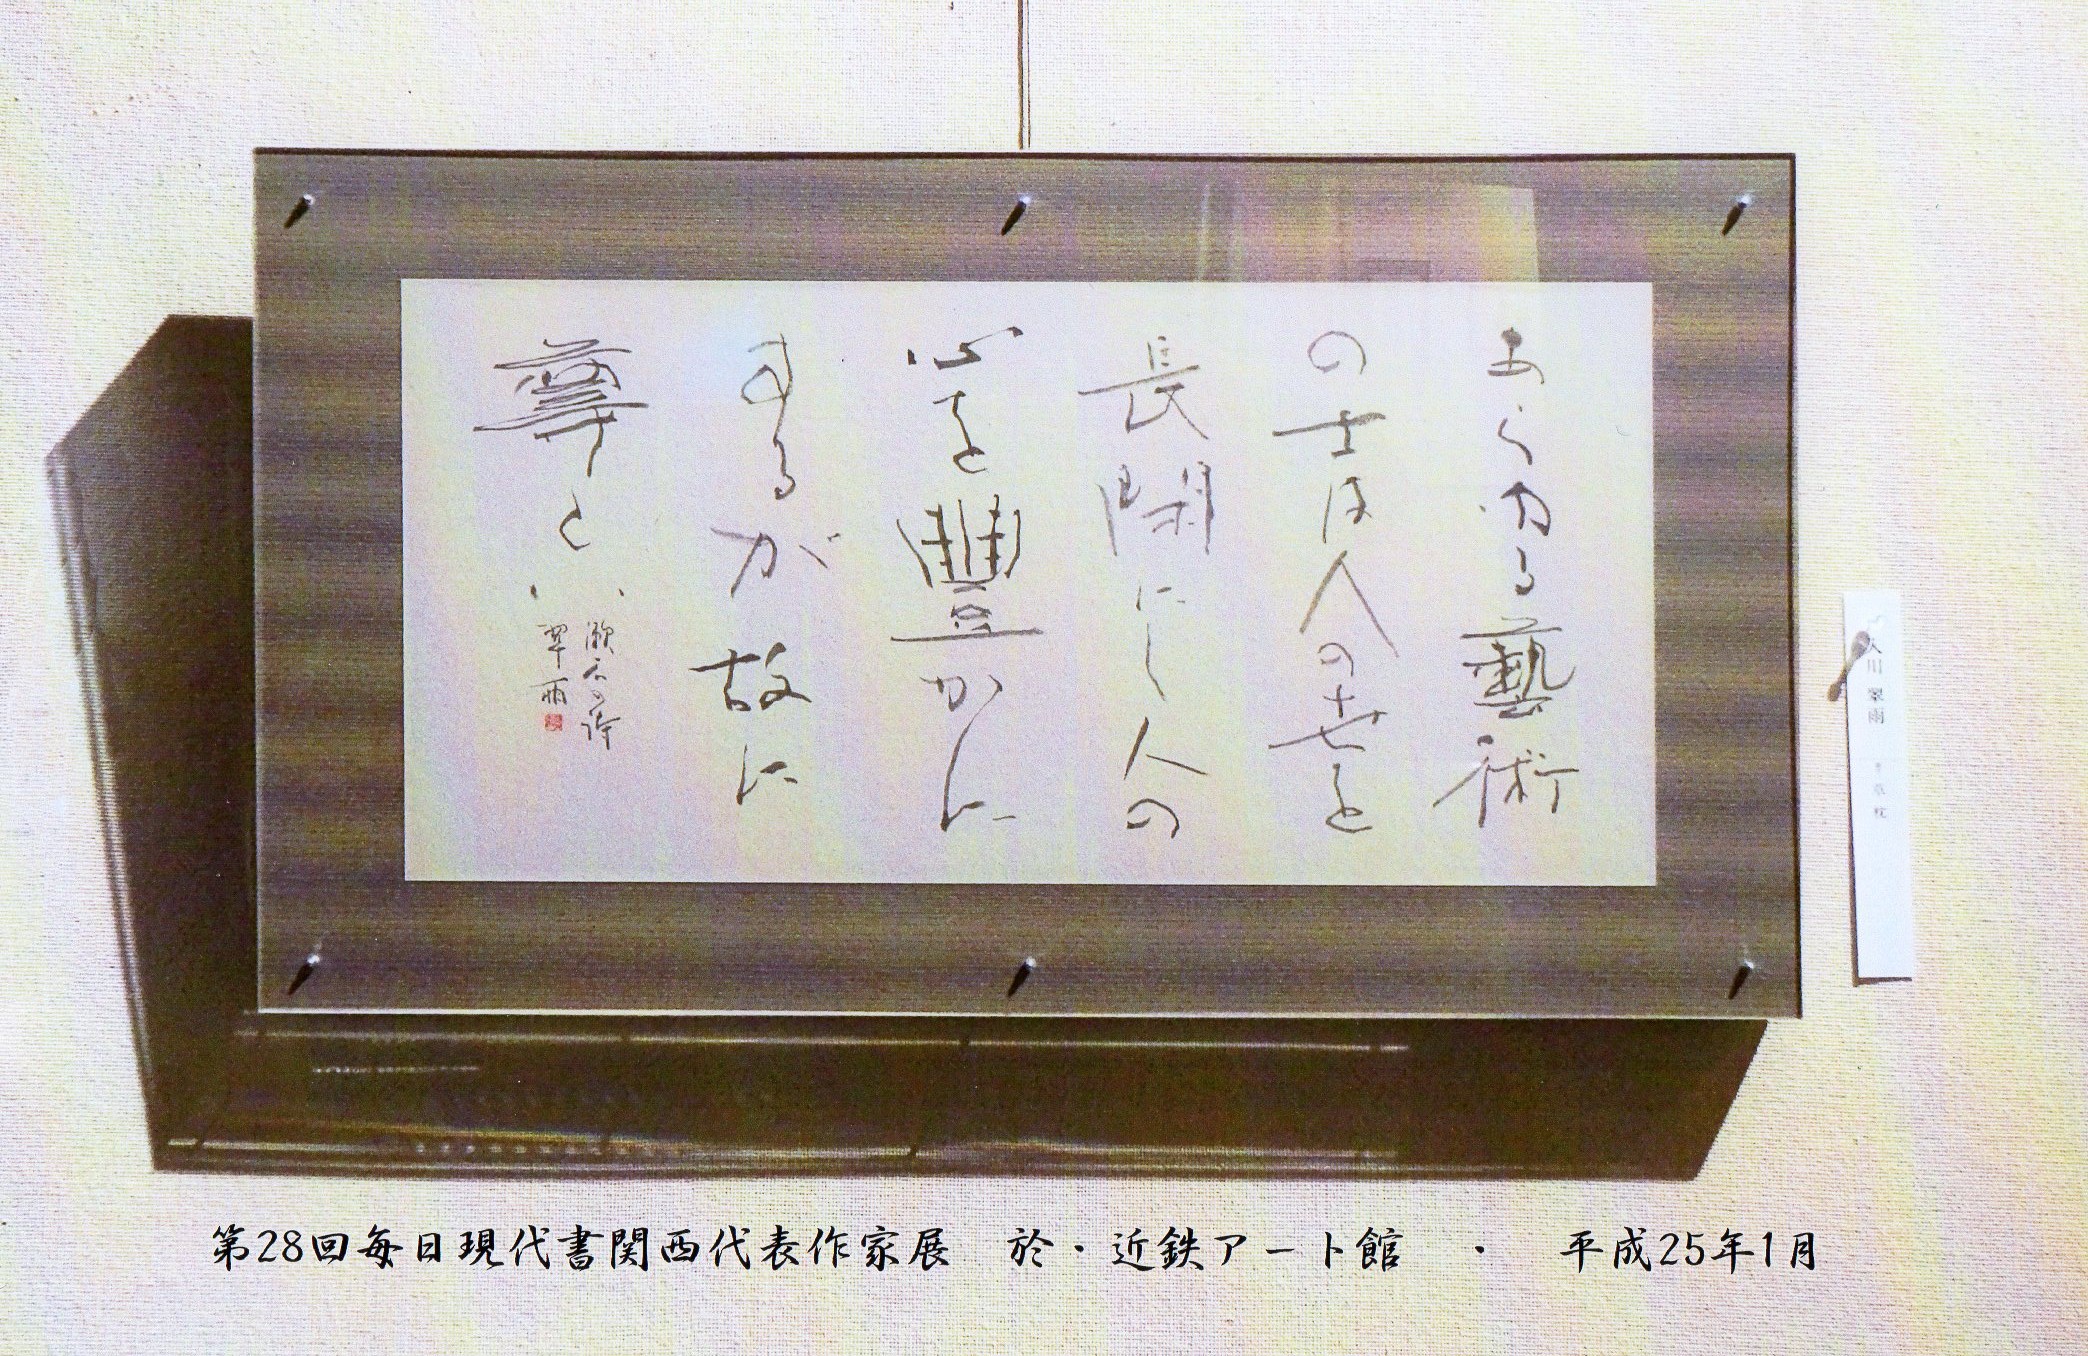 あらゆる藝術
の士は人の世を
長閑にし人の
心を豐かに
するが故に
尊とい
漱石の詩
翠雨
川 翠雨
草枕
第28回毎日現代書関西代表作家展 於・近鉄アート館 ・ 平成25年1月